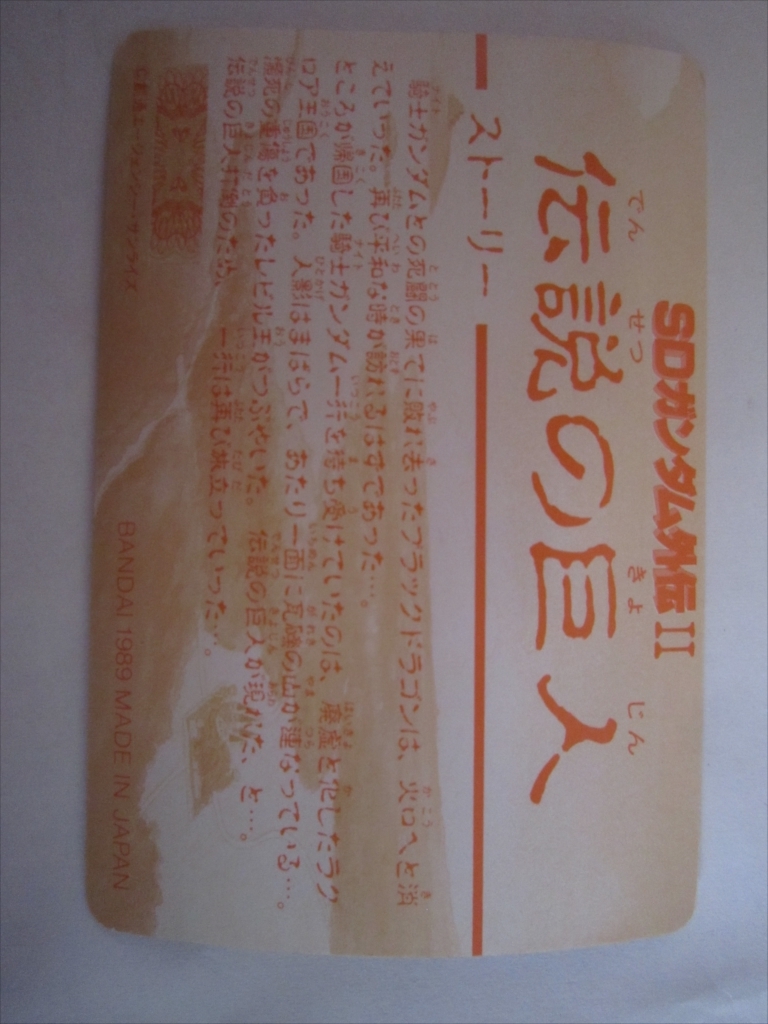 SDガンダム外伝II
でん せつ きょ じん
伝説の巨人
ストーリー
騎士ガンダムとの死闘の果てに敗れ去ったブラックドラゴンは、火口へと消
えていった。再び平和な時が訪れるはずであった…。
ところが帰国した騎士ガンダム一行を待ち受けていたのは、廃虚と化したラク
ロア王国であった。人影はまばらで、あたり一面に瓦礫の山が連なっている…。
瀕死の重傷を負ったレビル王がつぶやいた。 伝説の巨人が現われた、と…。
伝説の巨人打倒のため、一行は再び旅立っていった…。
©創通エージェンシー・サンライズ
BANDAI 1989 MADE IN JAPAN